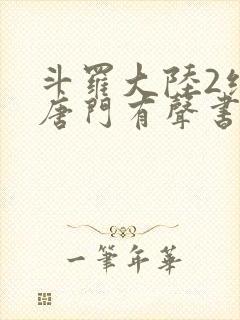 斗羅大陸2
唐門有聲書
一筆年華